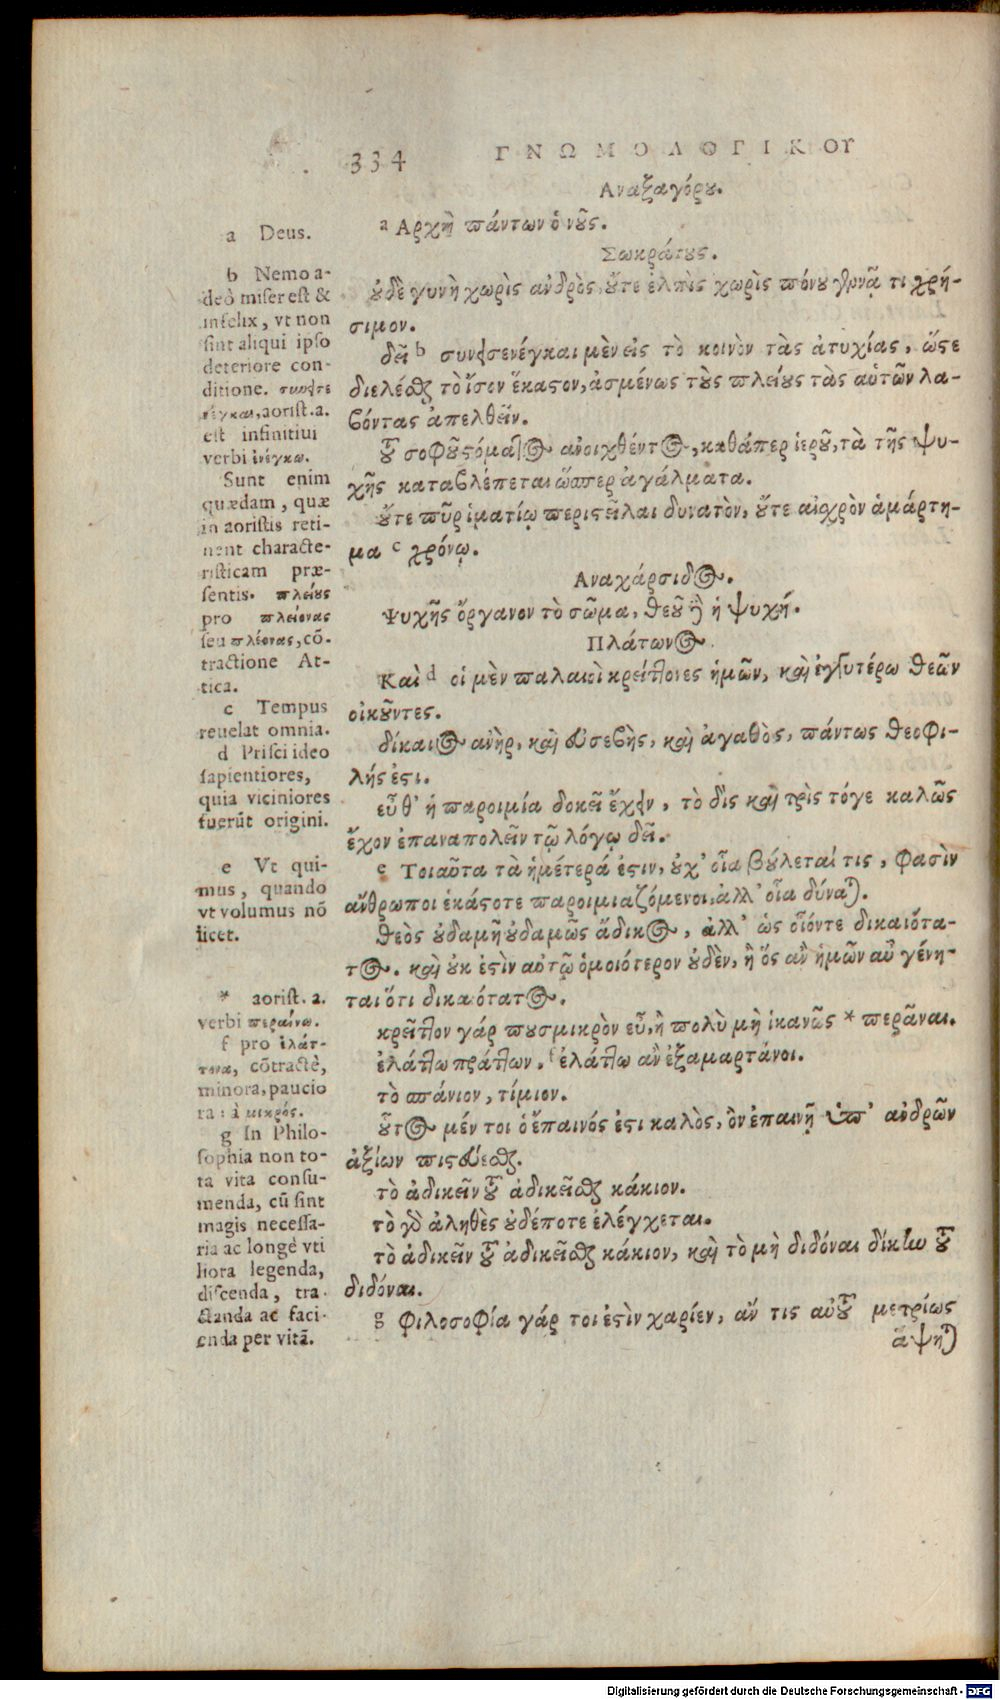 334 ΓΝΩΜΟΛΟΓΙΚΟΥ
Αναξαγόρου.
a Αρχὴ πάντων ὁ νοῦς.
Σωκράτους.
οὐδὲ γυνὴ χωρὶς ανδρὸς, οὔτε ἐλπὶς χωρὶς πόνου γεννᾷ τι χρή-
σιμον.
δεῖ b συνεισενέγκαι μὲν εἰς τὸ κοινὸν τὰς ἀτυχίας, ὥστε
διελέσθαι τὸ ἴσον ἕκαστον, ἀσμένως τοὺς πλείους τὰς αὑτῶν λα-
βόντας ἀπελθεῖν.
τοῦ σοφοῦ στόματος ανοιχθέντος, καθάπερ ἱεροῦ, τὰ τῆς ψυ-
χῆς καταβλέπεται ὥσπερ ἀγάλματα.
οὔτε πῦρ ἱματίῳ περιστεῖλαι δυνατὸν, οὔτε αἰσχρὸν ἁμάρτη-
μα c χρόνῳ.
Αναχάρσιδος.
Ψυχῆς ὄργανον τὸ σῶμα, θεοῦ δὲ ἡ ψυχή.
Πλάτωνος.
Καὶ d οἱ μὲν παλαιοὶ κρείττονες ἡμῶν, καὶ ἐγγυτέρω θεῶν
οἰκοῦντες.
δίκαιος ανὴρ, καὶ εὐσεβὴς, καὶ ἀγαθὸς, πάντως θεοφι-
λής ἐστι.
εὖ θ' ἡ παροιμία δοκεῖ ἔχειν, τὸ δὶς καὶ τρὶς τόγε καλῶς
ἔχον ἐπαναπολεῖν τῷ λόγῳ δεῖ.
e Τοιαῦτα τὰ ἡμέτερά ἐστιν, οὐχ' οἷα βούλεταί τις, φασὶν
ἄνθρωποι ἑκάστοτε παροιμιαζόμενοι, ἀλλ' οἷα δύναται.
θεὸς οὐδαμῆ οὐδαμῶς ἄδικος, ἀλλ' ὡς οἷόντε δικαιότα-
τος. καὶ οὐκ ἐστὶν αὐτῷ ὁμοιότερον οὐδὲν, ἢ ὃς ἂν ἡμῶν αὖ γένη-
ται ὅτι δικαιότατος.
κρεῖττον γάρ που σμικρὸν εὖ, ἢ πολὺ μὴ ἱκανῶς * περᾶναι.
ἐλάττω πράττων, f ἐλάττω ἂν ἐξαμαρτάνοι.
τὸ σπάνιον, τίμιον.
οὗτος μέν τοι ὁ ἔπαινός ἐστι καλὸς, ὃν ἐπαινῇ ὑπ' ανδρῶν
ἀξίων πιστεύεσθαι.
τὸ ἀδικεῖν τοῦ ἀδικεῖσθαι κάκιον.
τὸ γὰρ ἀληθὲς οὐδέποτε ἐλέγχεται.
τὸ ἀδικεῖν τοῦ ἀδικεῖσθαι κάκιον, καὶ τὸ μὴ διδόναι δίκην τοῦ
διδόναι.
g Φιλοσοφία γάρ τοι ἐστὶν χαρίεν, ἄν τις αὐτοῦ μετρίως
ἅψηται
a Deus.
b Nemo a-
deò miser est &
infelix, vt non
sint aliqui ipso
deteriore con-
ditione. συνεισε
νέγκαι, aorist. a.
est infinitiui
verbi ἐνέγκω.
Sunt enim
quædam, quæ
in aoristis reti-
nent characte-
risticam præ-
sentis. πλείους
pro πλείονας
seu πλέονας, cō-
tractione At-
tica.
c Tempus
reuelat omnia.
d Prisci ideo
sapientiores,
quia viciniores
fuerūt origini.
e Vt qui-
mus, quando
vt volumus nō
licet.
* aorist. a.
verbi περαίνω.
f pro ἐλάτ-
τονα, cōtractè,
minora, paucio
ra: à μικρός.
g In Philo-
sophia non to-
ta vita consu-
menda, cū sint
magis necessa-
ria ac longè vti
liora legenda,
discenda, tra-
ctanda ac faci-
enda per vitā.
Digitalisierung gefördert durch die Deutsche Forschungsgemeinschaft - DFG